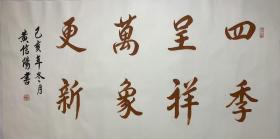 四季
呈祥
萬象
更新
己亥年冬月
黄書